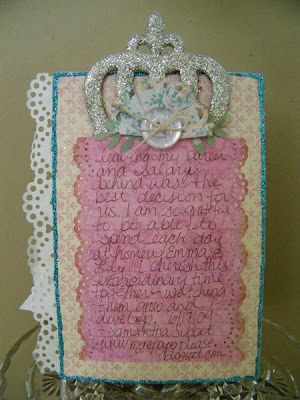 leaving my career
and salary
behind was the
best decision for
us. I am so grateful
to be able to
spend each day
at home w/ Emma &
I cherish this
extraordinary time
together - watching
them grow and
develop. 10/9/09
Samantha
www.merepaperlease.
blogspot.com